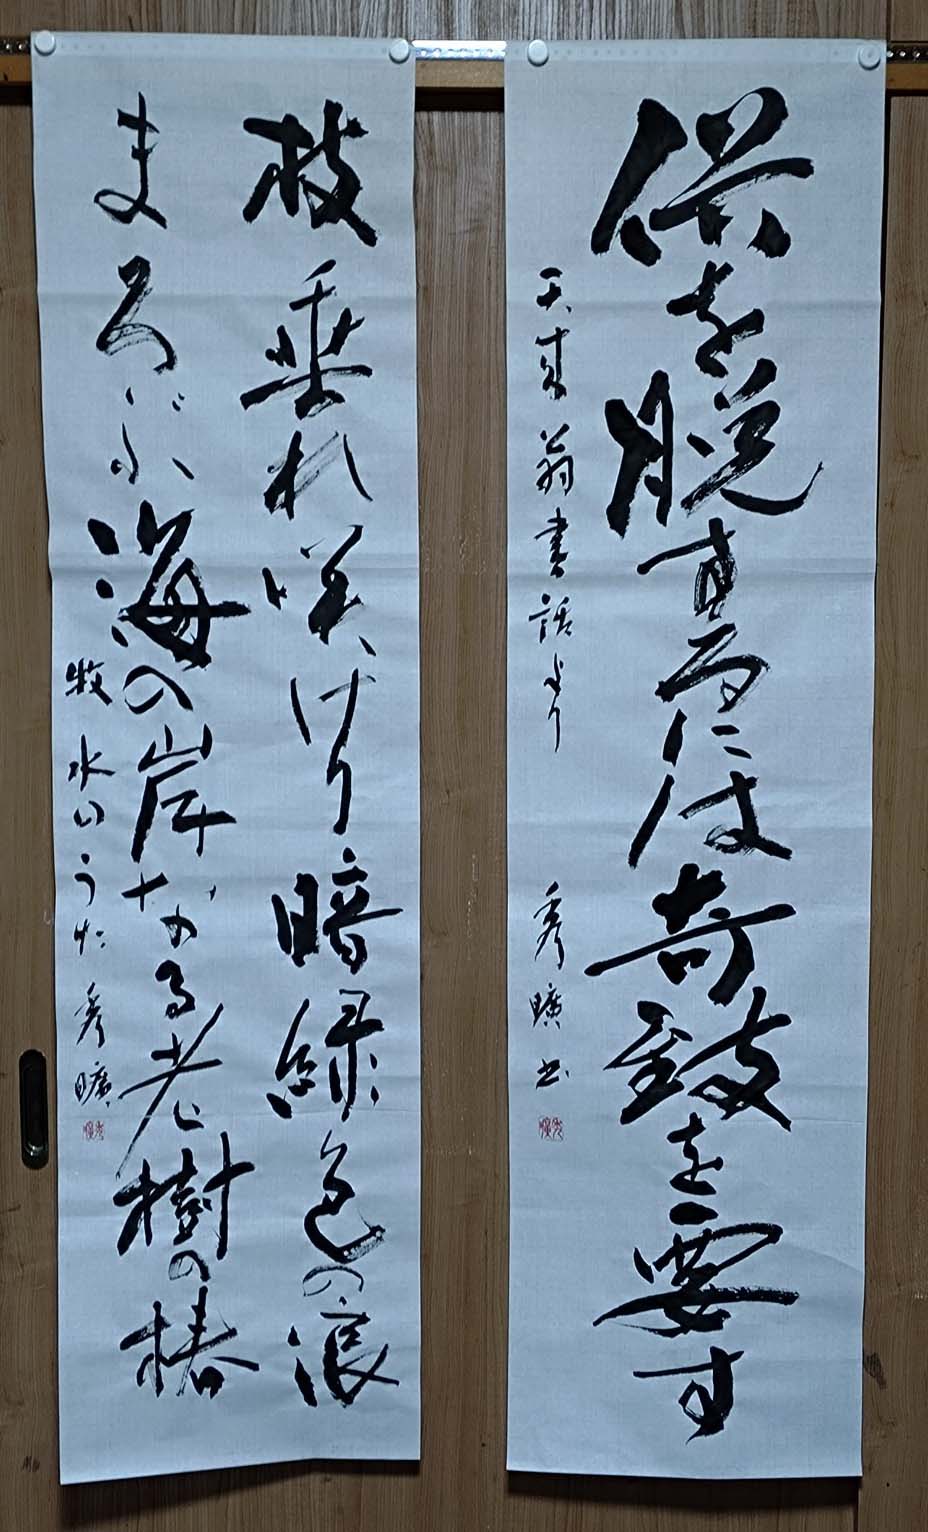 俗を脱するには奇致を要す
天来翁書話より 秀曠書
枝垂れ咲けり暗緑色の浪
まろぶ海の岸なる老樹の椿
牧水のうた 秀曠